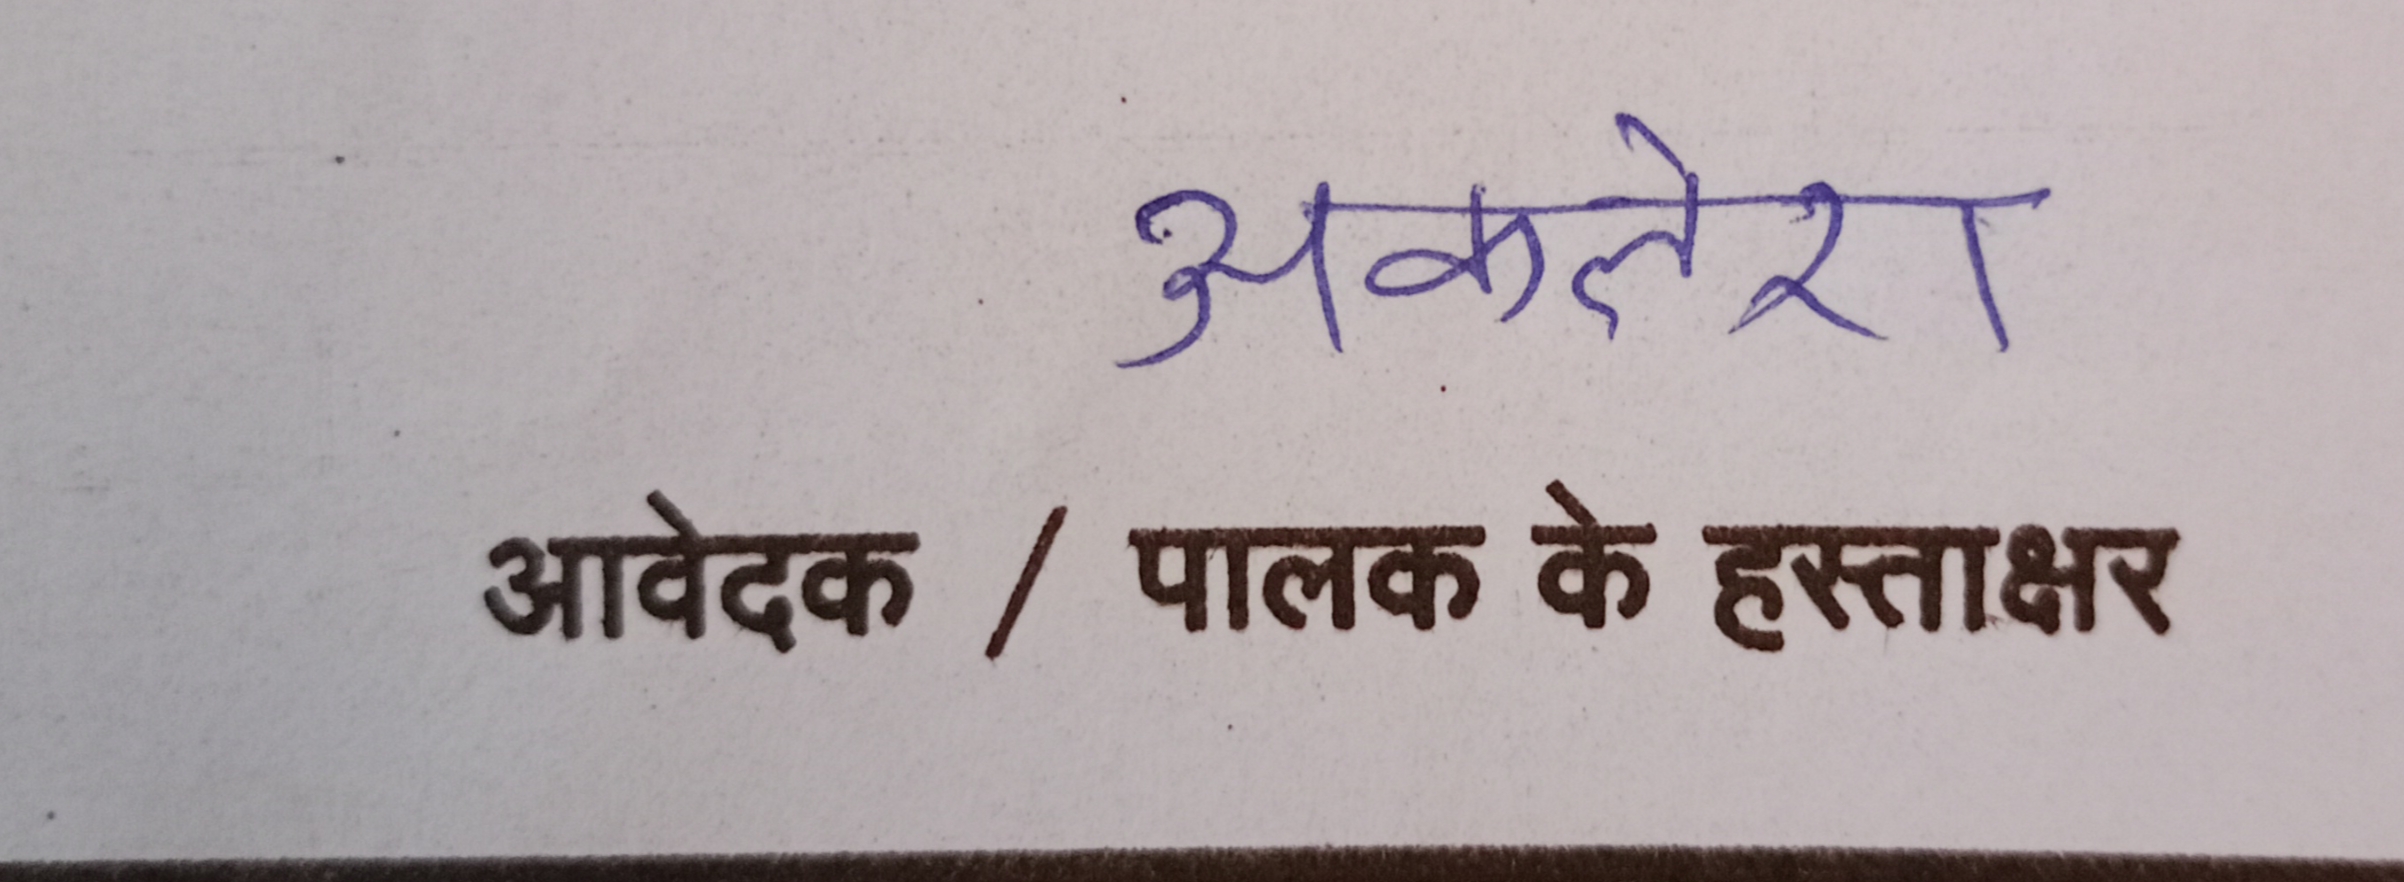 अकलेश
आवेदक / पालक के हस्ताक्षर